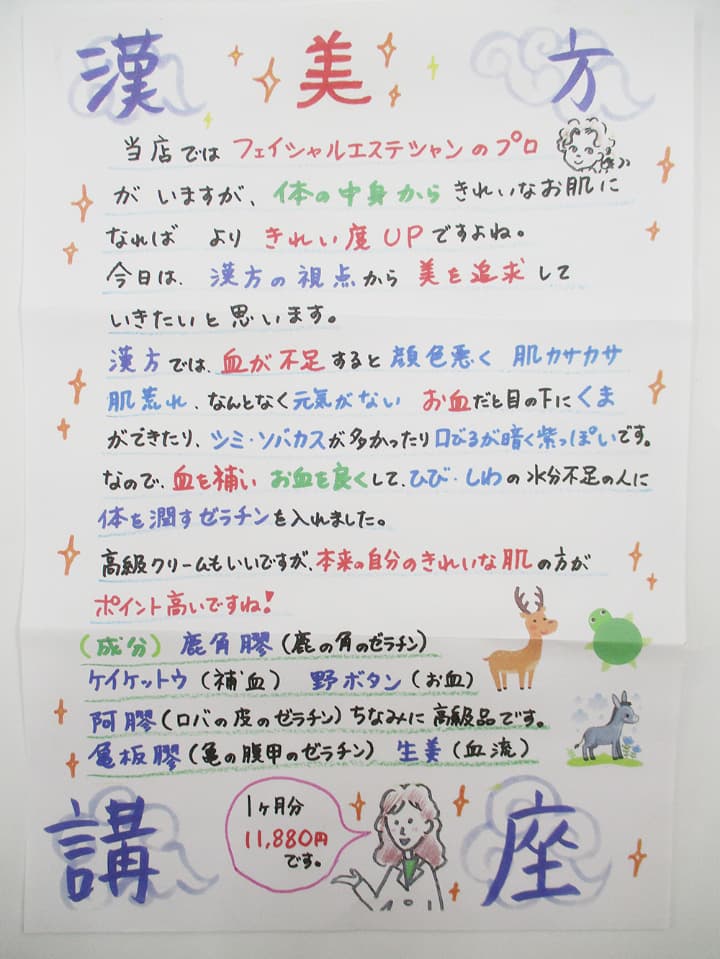 漢 美 方
当店では フェイシャルエステシャンのプロ
がいますが、体の中身からきれいなお肌に
なれば よりきれい度UPですよね。
今日は、漢方の視点から美を追求して
いきたいと思います。
漢方では、血が不足すると顔色悪く 肌カサカサ
肌荒れ、なんとなく元気がない お血だと目の下にくま
ができたり、シミ・ソバカスが多かったり口びるが暗く紫っぽいです。
なので、血を補い お血を良くして、ひび・しわの水分不足の人に
体を潤すゼラチンを入れました。
高級クリームもいいですが、本来の自分のきれいな肌の方が
ポイント高いですね!
(成分) 鹿角膠(鹿の角のゼラチン)
ケイケットウ(補血) 野ボタン(お血)
阿膠(ロバの皮のゼラチン)ちなみに高級品です。
亀板膠(亀の腹甲のゼラチン) 生姜(血流)
講 座
1ヶ月分
11,880円
です。